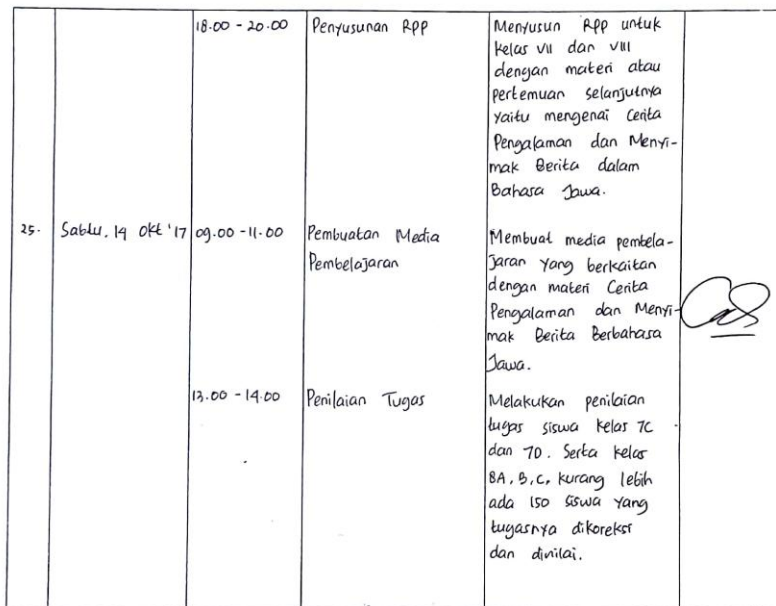 18.00 - 20.00 Penyusunan RPP Menyusun RPP untuk
kelas VII dan VIII
dengan materi atau
pertemuan selanjutnya
yaitu mengenai Cerita
Pengalaman dan Menyi-
mak Berita dalam
Bahasa Jawa.
25. Sabtu, 14 Okt '17 09.00 - 11.00 Pembuatan Media Membuat media pembela-
Pembelajaran jaran yang berkaitan
dengan materi Cerita
Pengalaman dan Menyi-
mak Berita Berbahasa
Jawa.
13.00 - 14.00 Penilaian Tugas Melakukan penilaian
tugas siswa kelas 7C
dan 7D. Serta kelas
8A, B, C, kurang lebih
ada 150 siswa yang
tugasnya dikoreksi
dan dinilai.